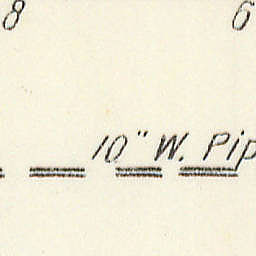 8 6
10" W. Pip